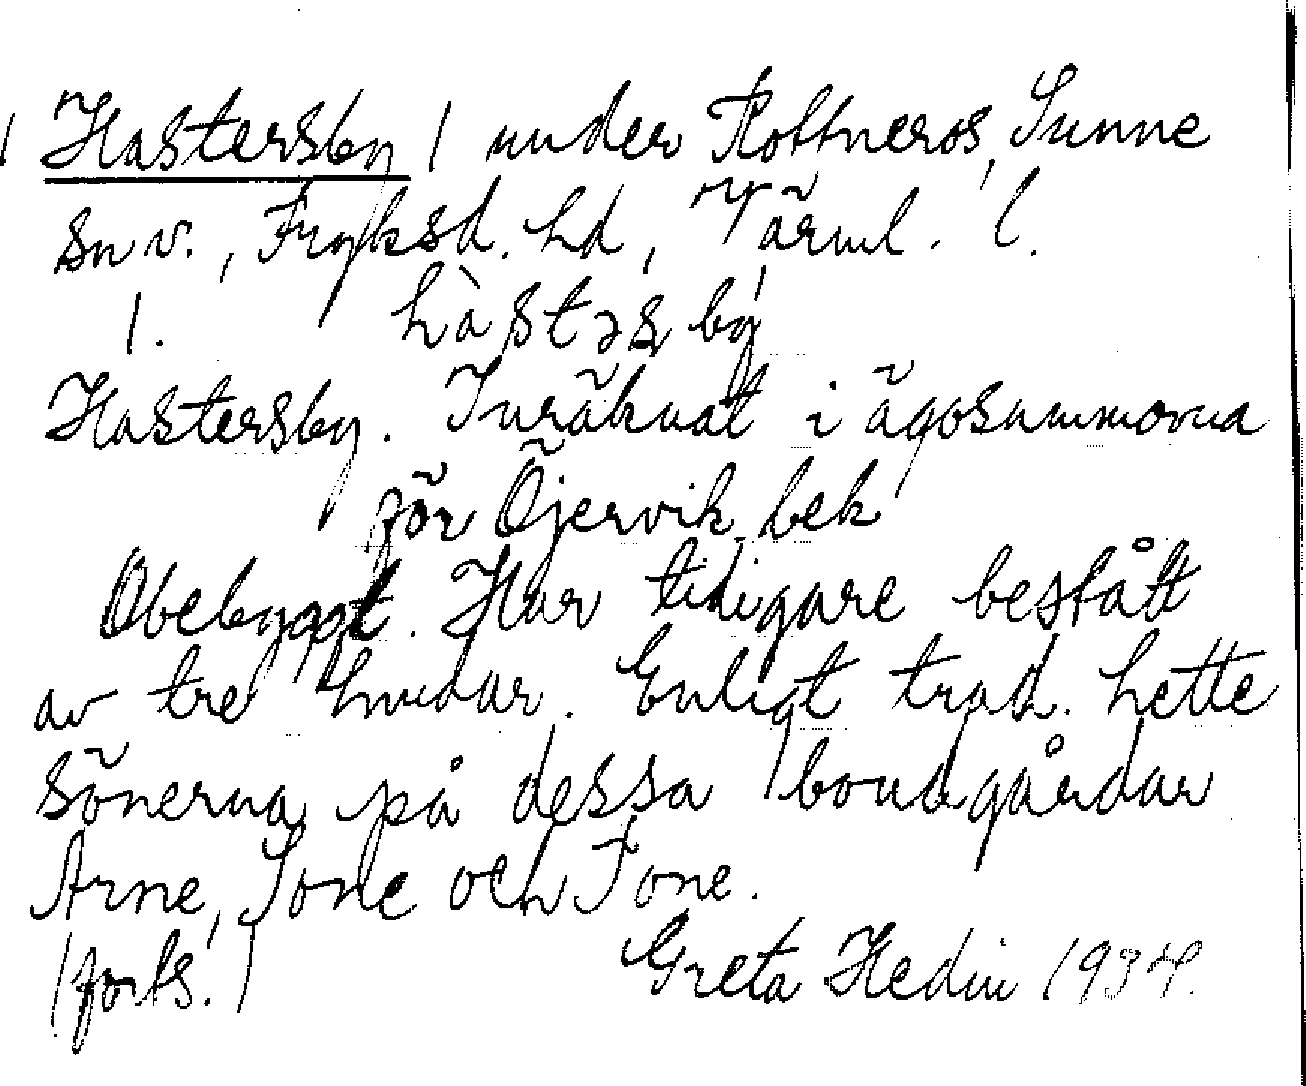 (Hastersby) under Rottneros, Sunne
sn v., Fryksd. hd, Värml. l.
1. hàstəʂ by
Hastersby. Inräknat i ägosummorna
för Öjervik bek
Obebyggt. Har tidigare bestått
av tre hudar. Enligt trad. hette
sönerna på dessa bondgårdar
Arne, Tone och Fone.
(forts.) Greta Hedin 1934.